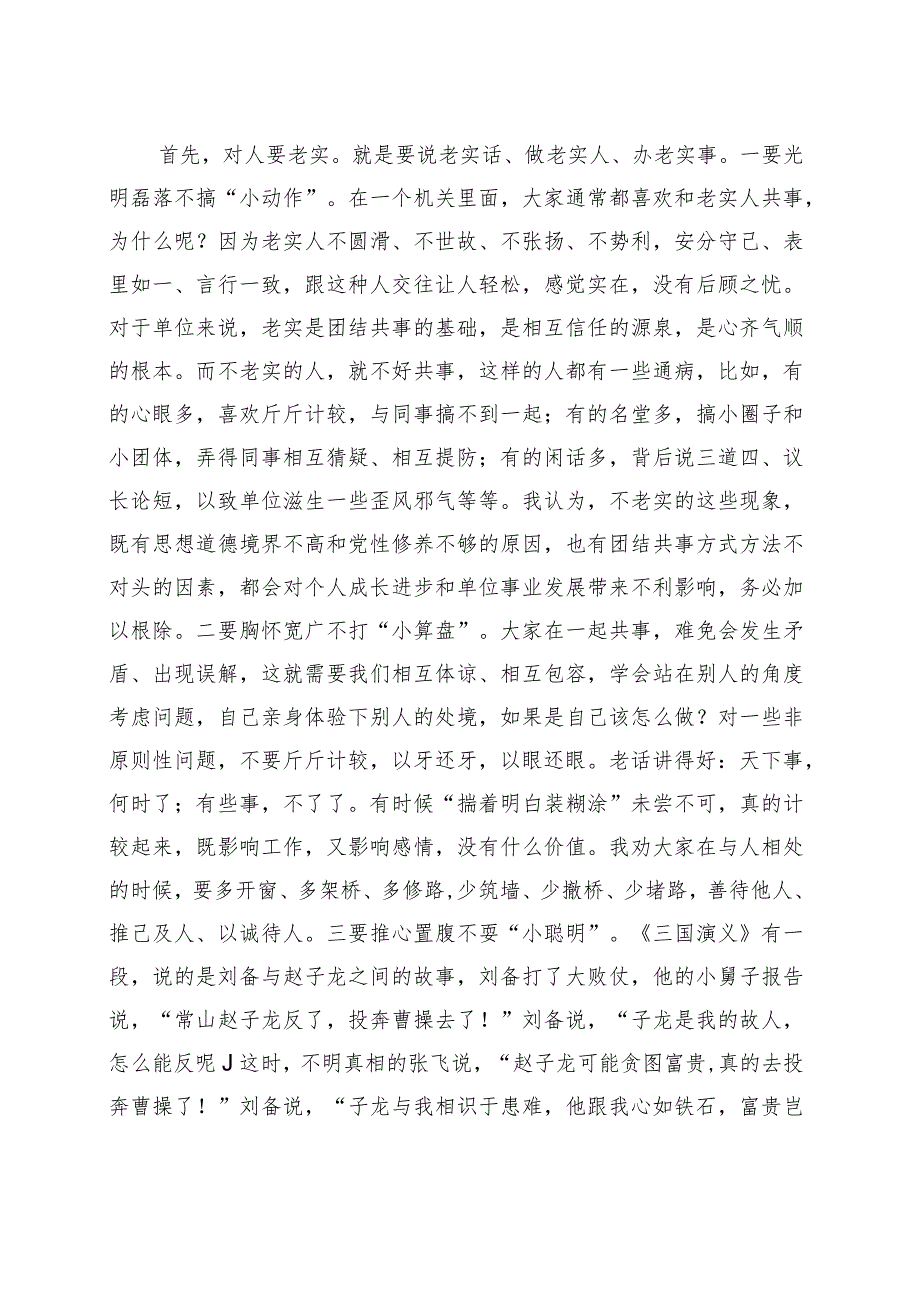 首先，对人要老实。就是要说老实话、做老实人、办老实事。一要光
明磊落不搞“小动作”。在一个机关里面，大家通常都喜欢和老实人共事，
为什么呢？因为老实人不圆滑、不世故、不张扬、不势利，安分守己、表
里如一、言行一致，跟这种人交往让人轻松，感觉实在，没有后顾之忧。
对于单位来说，老实是团结共事的基础，是相互信任的源泉，是心齐气顺
的根本。而不老实的人，就不好共事，这样的人都有一些通病，比如，有
的心眼多，喜欢斤斤计较，与同事搞不到一起；有的名堂多，搞小圈子和
小团体，弄得同事相互猜疑、相互提防；有的闲话多，背后说三道四、议
长论短，以致单位滋生一些歪风邪气等等。我认为，不老实的这些现象，
既有思想道德境界不高和党性修养不够的原因，也有团结共事方式方法不
对头的因素，都会对个人成长进步和单位事业发展带来不利影响，务必加
以根除。二要胸怀宽广不打“小算盘”。大家在一起共事，难免会发生矛
盾、出现误解，这就需要我们相互体谅、相互包容，学会站在别人的角度
考虑问题，自己亲身体验下别人的处境，如果是自己该怎么做？对一些非
原则性问题，不要斤斤计较，以牙还牙，以眼还眼。老话讲得好：天下事，
何时了；有些事，不了了。有时候“揣着明白装糊涂”未尝不可，真的计
较起来，既影响工作，又影响感情，没有什么价值。我劝大家在与人相处
的时候，要多开窗、多架桥、多修路,少筑墙、少撤桥、少堵路，善待他人、
推己及人、以诚待人。三要推心置腹不耍“小聪明”。《三国演义》有一
段，说的是刘备与赵子龙之间的故事，刘备打了大败仗，他的小舅子报告
说，“常山赵子龙反了，投奔曹操去了！”刘备说，“子龙是我的故人，
怎么能反呢J这时，不明真相的张飞说，“赵子龙可能贪图富贵,真的去投
奔曹操了！”刘备说，“子龙与我相识于患难，他跟我心如铁石，富贵岂